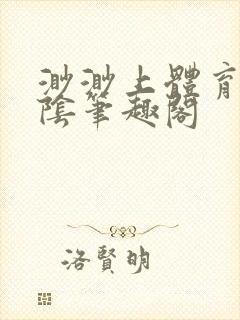 渺渺上體育
陰筆趣閣
洛賢明